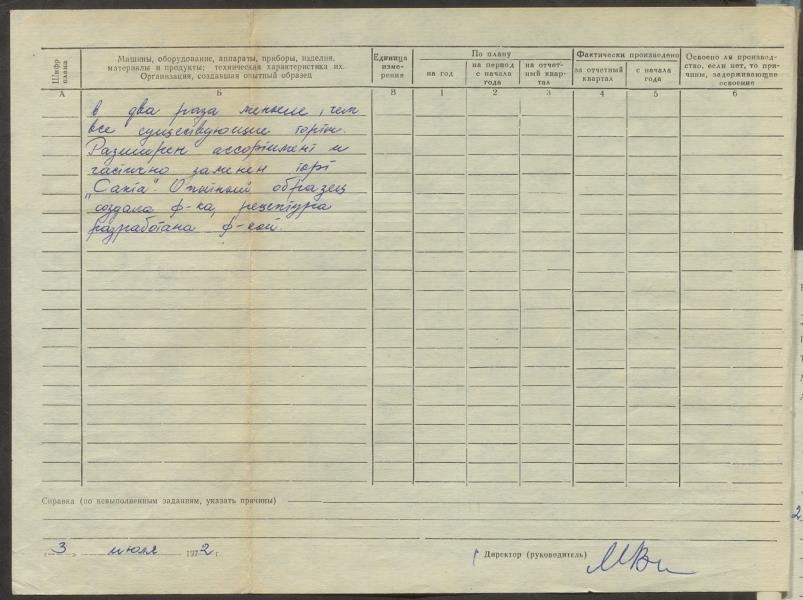 Шифр плана
Машины, оборудование, аппараты, приборы, изделия, материалы и продукты; техническая характеристика их. Организация, создавшая опытный образец
Единица изме-рения
По плану
на год
на период с начала года
на отчет-ный квар-тал
Фактически произведено
за отчетный квартал
с начала года
Освоено ли производ-ство, если нет, то при-чины, задерживающие освоение
А Б В 1 2 3 4 5 6
в два раза меньше, чем
все существующие торты.
Расширен ассортимент и
частично заменен торт
"Сакта". Опытный образец
создала ф-ка, рецептура
разработана ф-кой.
Справка (по невыполненным заданиям, указать причины)
„3„ июля 1972 г.
Директор (руководитель)